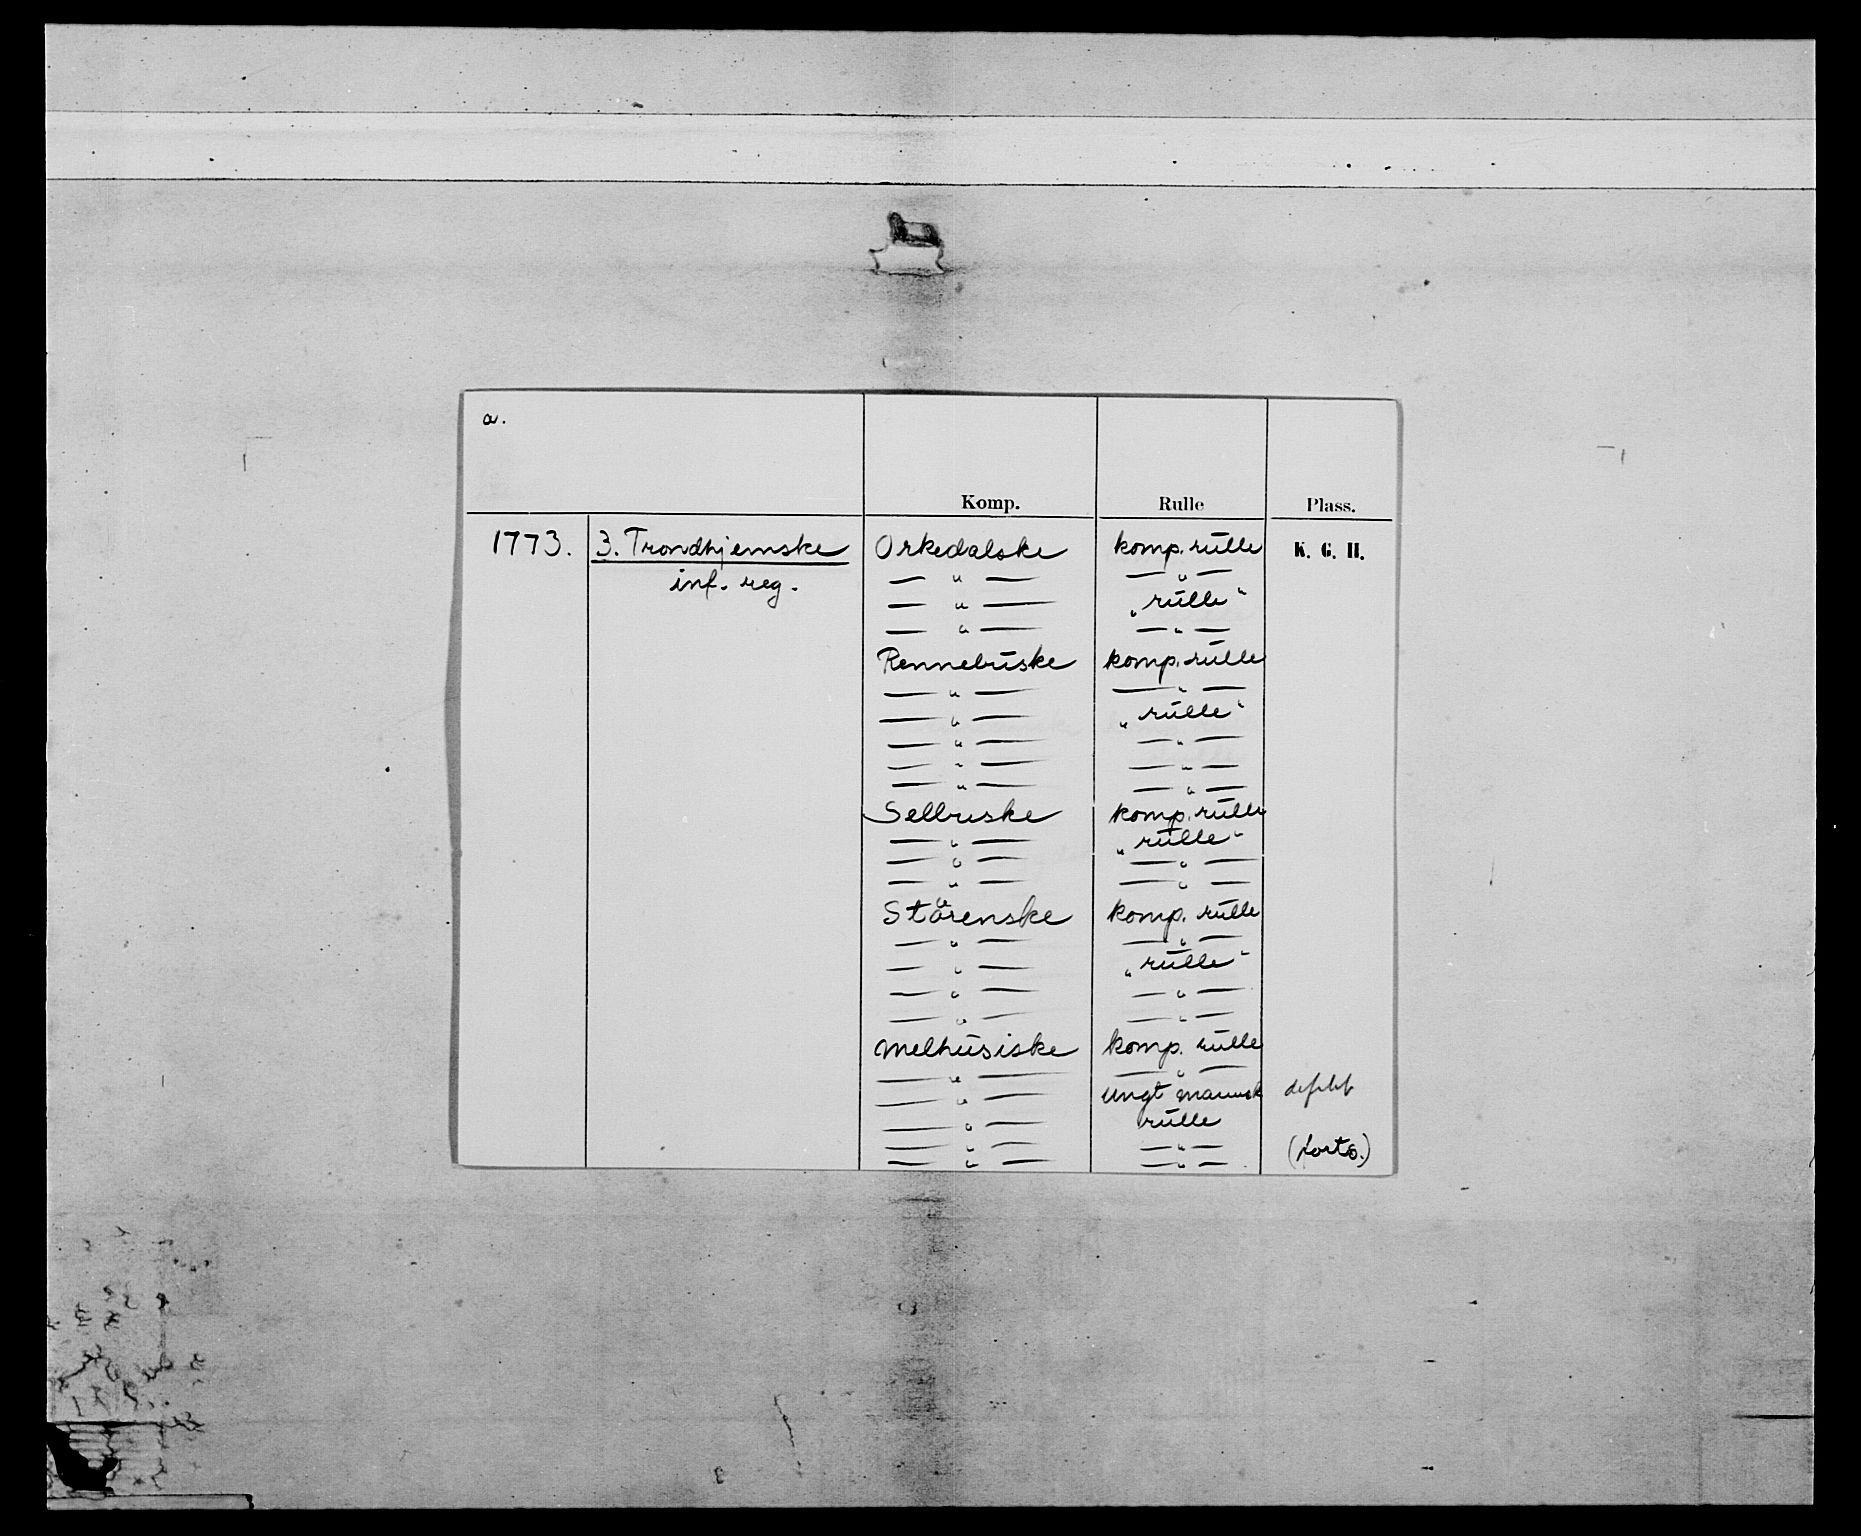 a.
Komp. Rulle Plass.
1773. 3. Trondhjemske Orkedalske komp. rulle K. G. H.
inf. reg. — " — — " —
— " — „ rulle “
— " — — " —
Rennebuske komp. rulle
— " — — " —
— " — „ rulle “
— " — — " —
— " — — " —
— " — — " —
Selbuske komp. rulle
— " — „ rulle “
— " — — " —
— " — — " —
Størenske komp. rulle
— " — — " —
— " — „ rulle “
— " — — " —
— " — — " —
Melhusiske komp. rulle
— " — — " —
— " — ungt mannsk
— " — rulle
— " — — " — (forts.)
— " — — " —